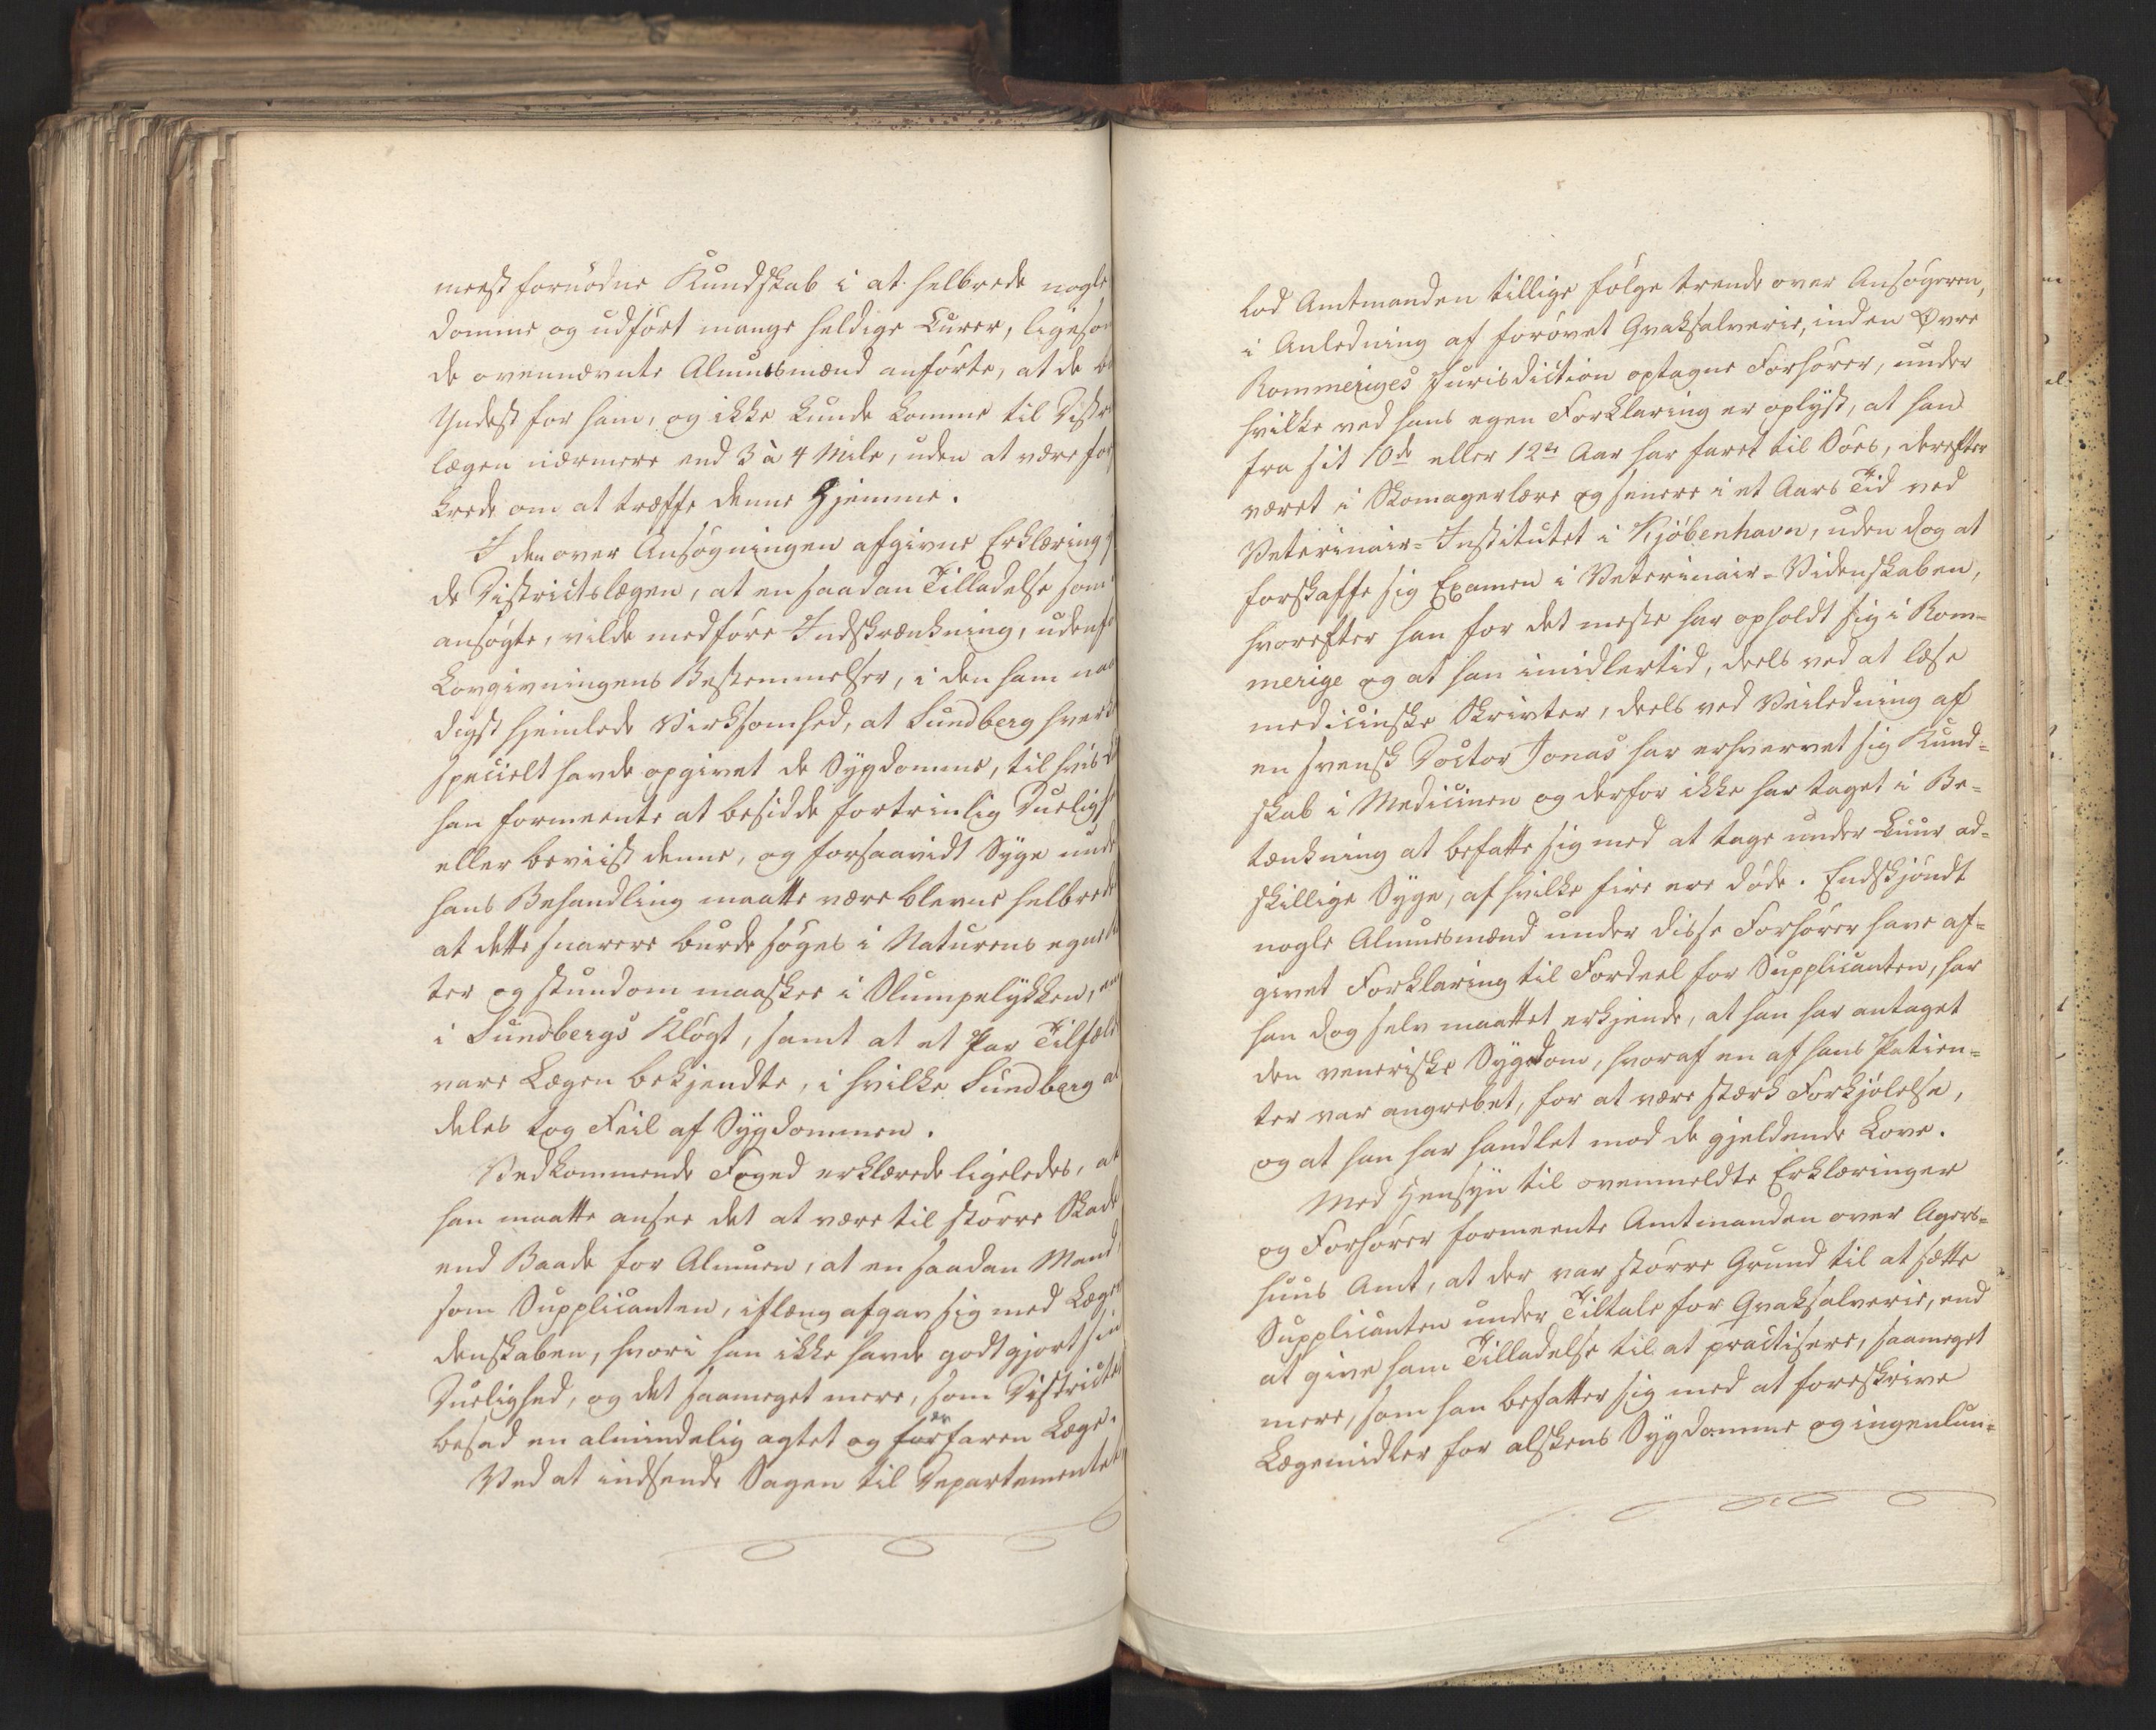 meest fornødne Kundskab i at helbrede nogle
domme og udført mange heldige Curer, ligesom
de ovennævnte Almuesmænd anførte, at de
Yndest for ham, og ikke kunde komme til Distr
lægen nærmere end 3 à 4 Mile, uden at være for
krede om at træffe denne Hjemme.
I den over Ansøgningen afgivne Erklæring
de Districtslægen, at en saadan Tilladelse som
ansøgte, vilde medføre Indskrænkning, udenfo
Lovgivningens Bestemmelser, i den ham naa
digst hjemlede Virksomhed, at Sundberg hverk
specielt havde opgivet de Sygdomme, til hvis
han formeente at besidde fortrinlig Duelighe
eller beviist denne, og forsaavidt Syge unde
hans Behandling maatte være blevne helbrede
at dette snarere burde søges i Naturens egne
ter og stundom maaskee i Slumpelykken, en
i Sundbergs Kløgt, samt at et Par Tilfæld
vare Lægen bekjendte, i hvilke Sundberg al
deles tog Feil af Sygdommen.
Vedkommende Foged erklærede ligeledes, at
han maatte ansee det at være til større Skade
end Baade for Almuen, at en saadan Mand,
som Supplicanten, iflæng afgav sig med Læge
denskaben, hvori han ikke havde godtgjort sin
Duelighed, og det saameget mere, som Districtet
besad en almindelig agtet og erfaren Læge.
Ved at indsende Sagen til Departementet
lod Amtmanden tillige følge trende over Ansøgeren,
i Anledning af forøvet Qvaksalverie, inden Øvre
Rommeriges Jurisdiction optagne Forhører, under
hvilke ved hans egen Forklaring er oplyst, at han
fra sit 10de eller 12te Aar har faret til Søes, derefter
været i Skomagerlære og senere i et Aars Tid ved
Veterinair-Institutet i Kjøbenhavn, uden dog at
forskaffe sig Examen i Veterinair-Videnskaben,
hvorefter han for det meste har opholdt sig i Rom-
merige og at han imidlertid, deels ved at læse
medicinske Skrivter, deels ved Veiledning af
en svensk Doctor Jonas har erhvervet sig Kund-
skab i Medicinen og derfor ikke har taget i Be-
tænkning at befatte sig med at tage under Cuur ad-
skillige Syge, af hvilke fire ere døde. Endskjøndt
nogle Almuesmænd under disse Forhører have af-
givet Forklaring til Fordeel for Supplicanten, har
han dog selv maattet erkjende, at han har antaget
den veneriske Sygdom, hvoraf en af hans Patien-
ter var angrebet, for at være stærk Forkjølelse,
og at han har handlet mod de gjeldende Love.
Med Hensyn til ovenmeldte Erklæringer
og Forhører formeente Amtmanden over Agers-
huus Amt, at der var større Grund til at sætte
Supplicanten under Tiltale for Qvaksalverie, end
at give ham Tilladelse til at practisere, saameget
mere, som han befatter sig med at foreskrive
Lægemidler for alskens Sygdomme og ingenlun-